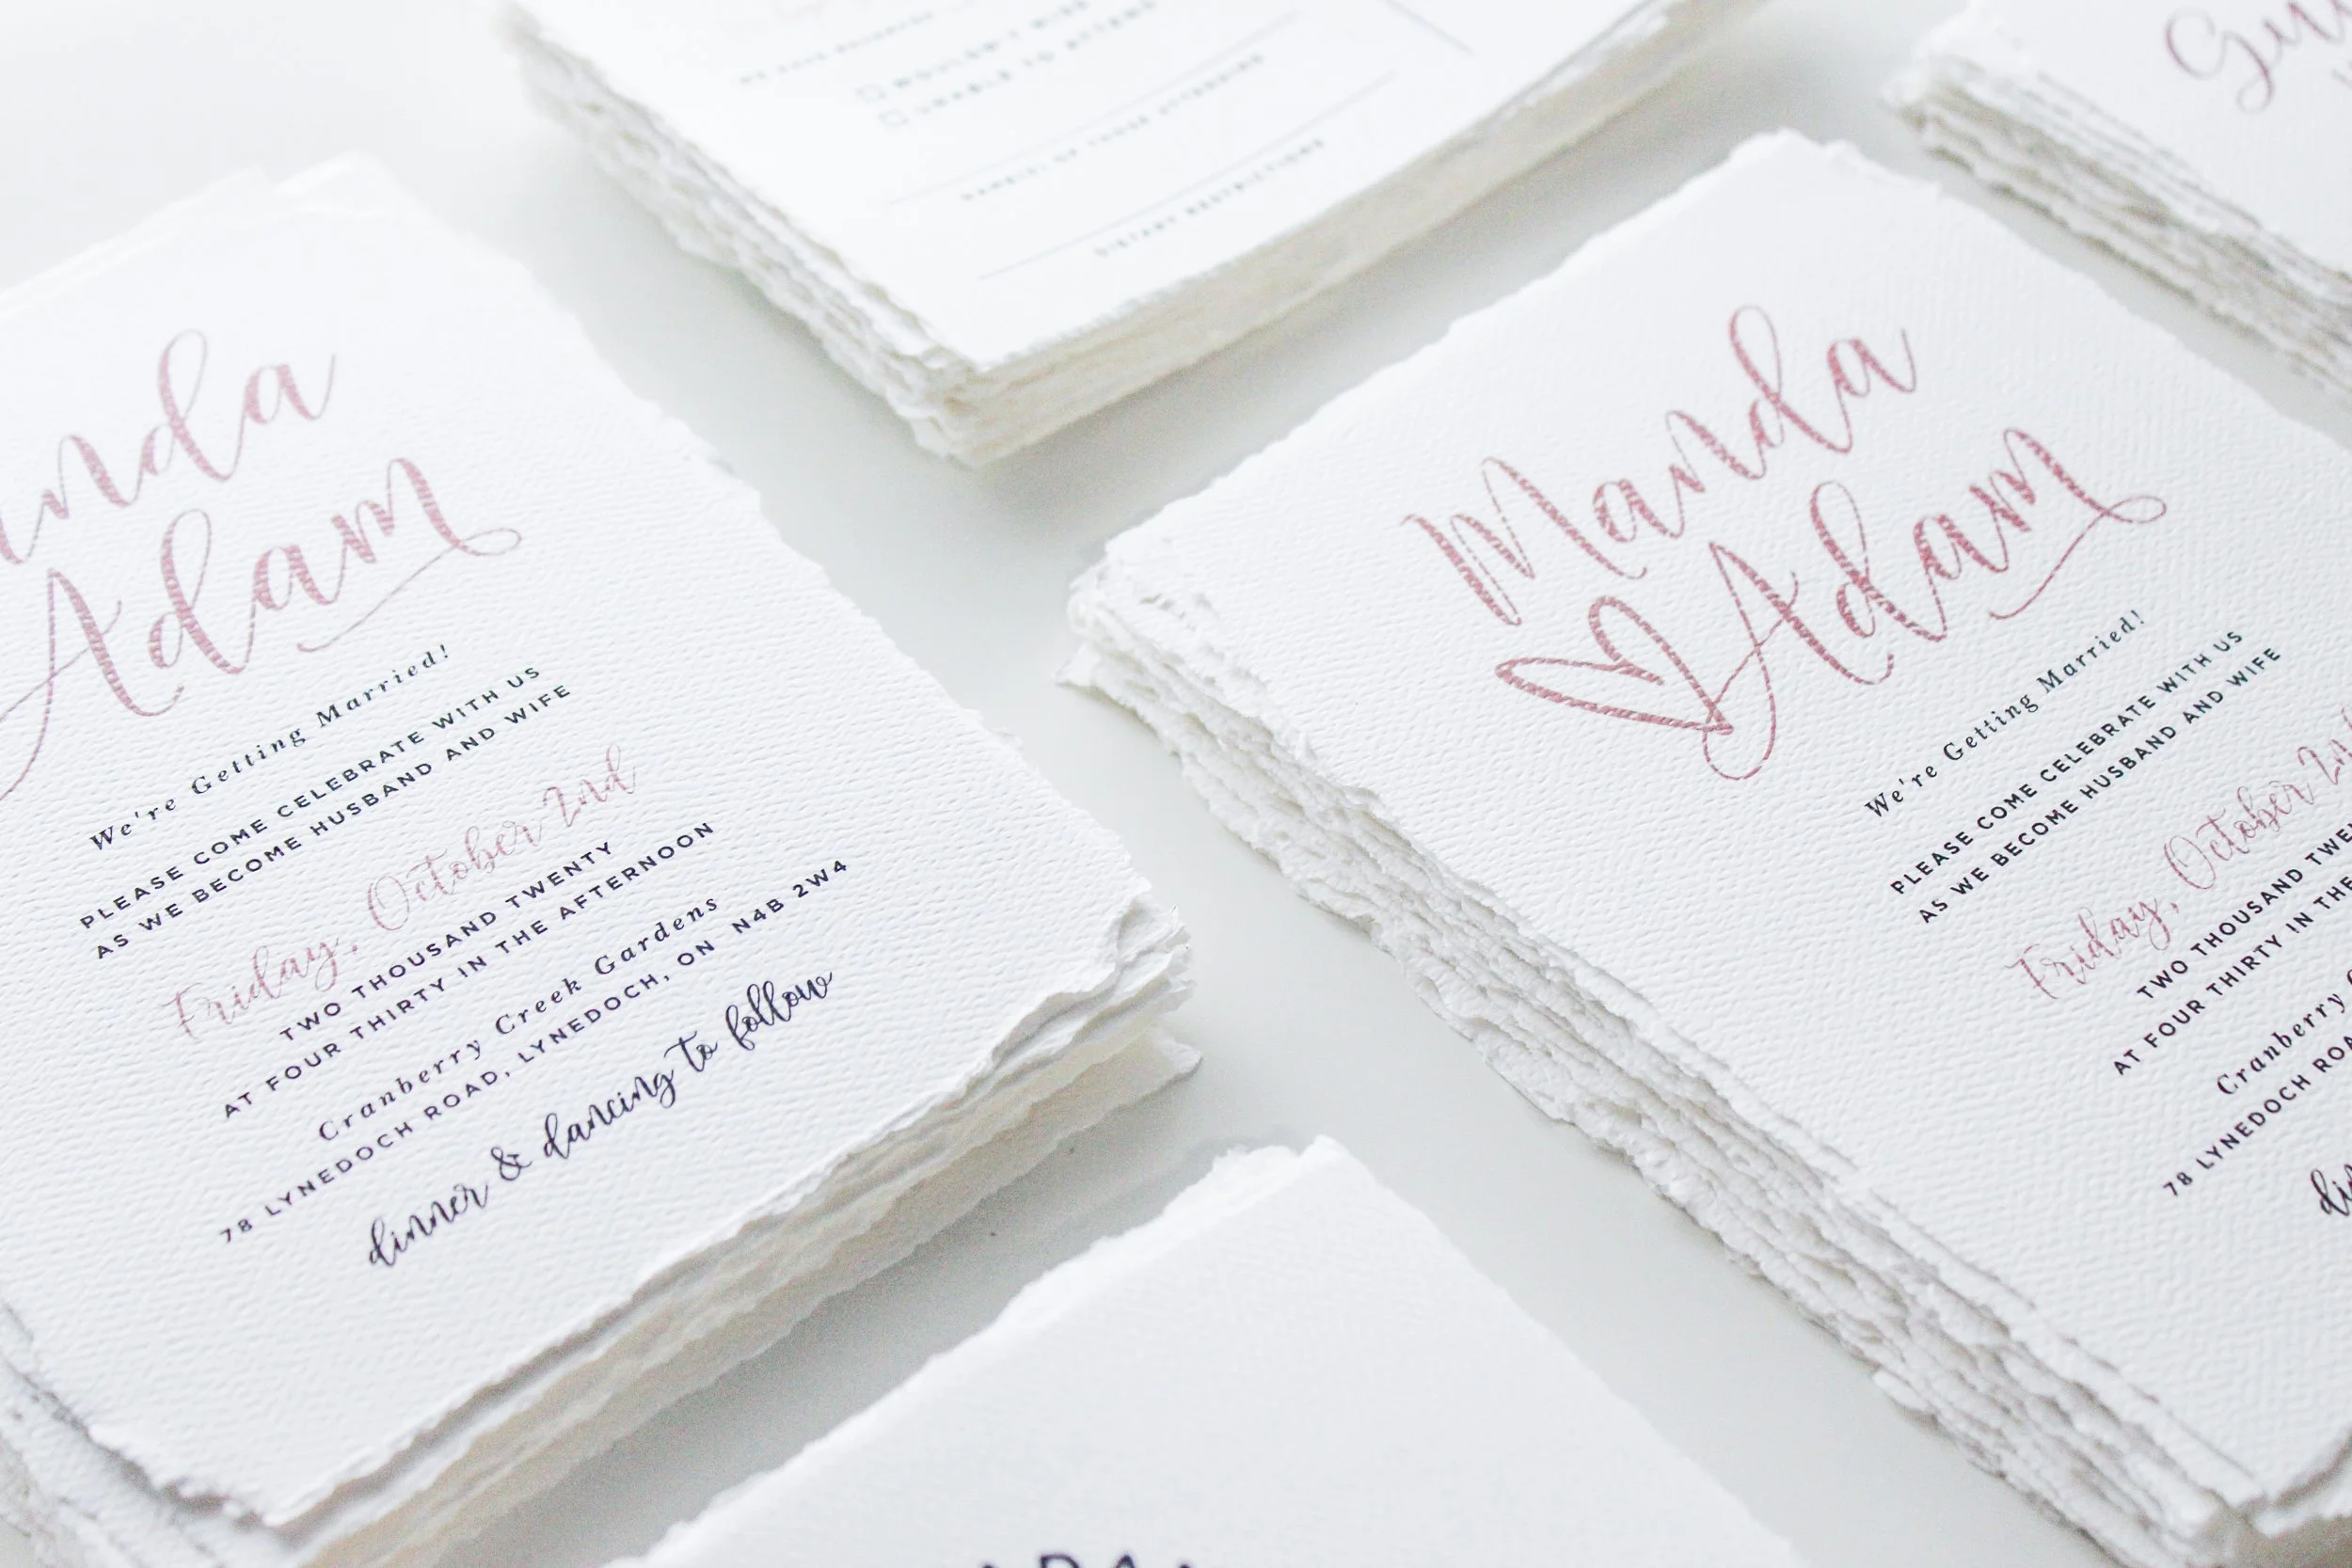 UNABLE TO ATTEND
NAME(S) OF THOSE ATTENDING
DIETARY RESTRICTIONS
Adam
We're Getting Married!
PLEASE COME CELEBRATE WITH US
AS WE BECOME HUSBAND AND WIFE
Friday, October 2nd
TWO THOUSAND TWENTY
AT FOUR THIRTY IN THE AFTERNOON
Cranberry Creek Gardens
78 LYNEDOCH ROAD, LYNEDOCH, ON N4B 2W4
dinner & dancing to follow
Manda
Adam
We're Getting Married!
PLEASE COME CELEBRATE WITH US
AS WE BECOME HUSBAND AND WIFE
Friday, October
TWO THOUSAND
AT FOUR THIRTY IN THE
Cranberry
78 LYNEDOCH